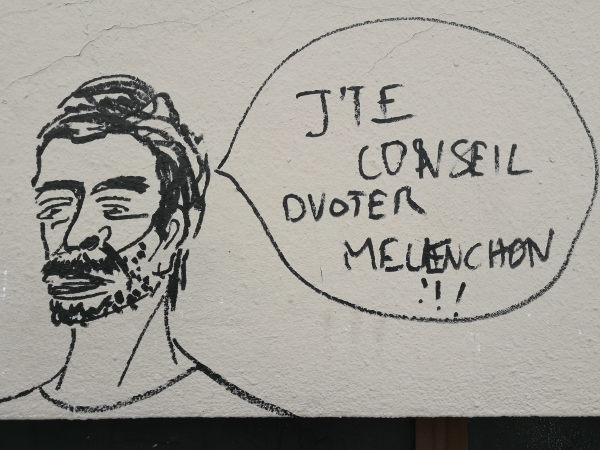 J'TE
CONSEIL
DVOTER
MELENCHON
!!!